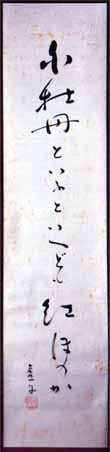 白牡丹といふといへども紅ほのか
虚子